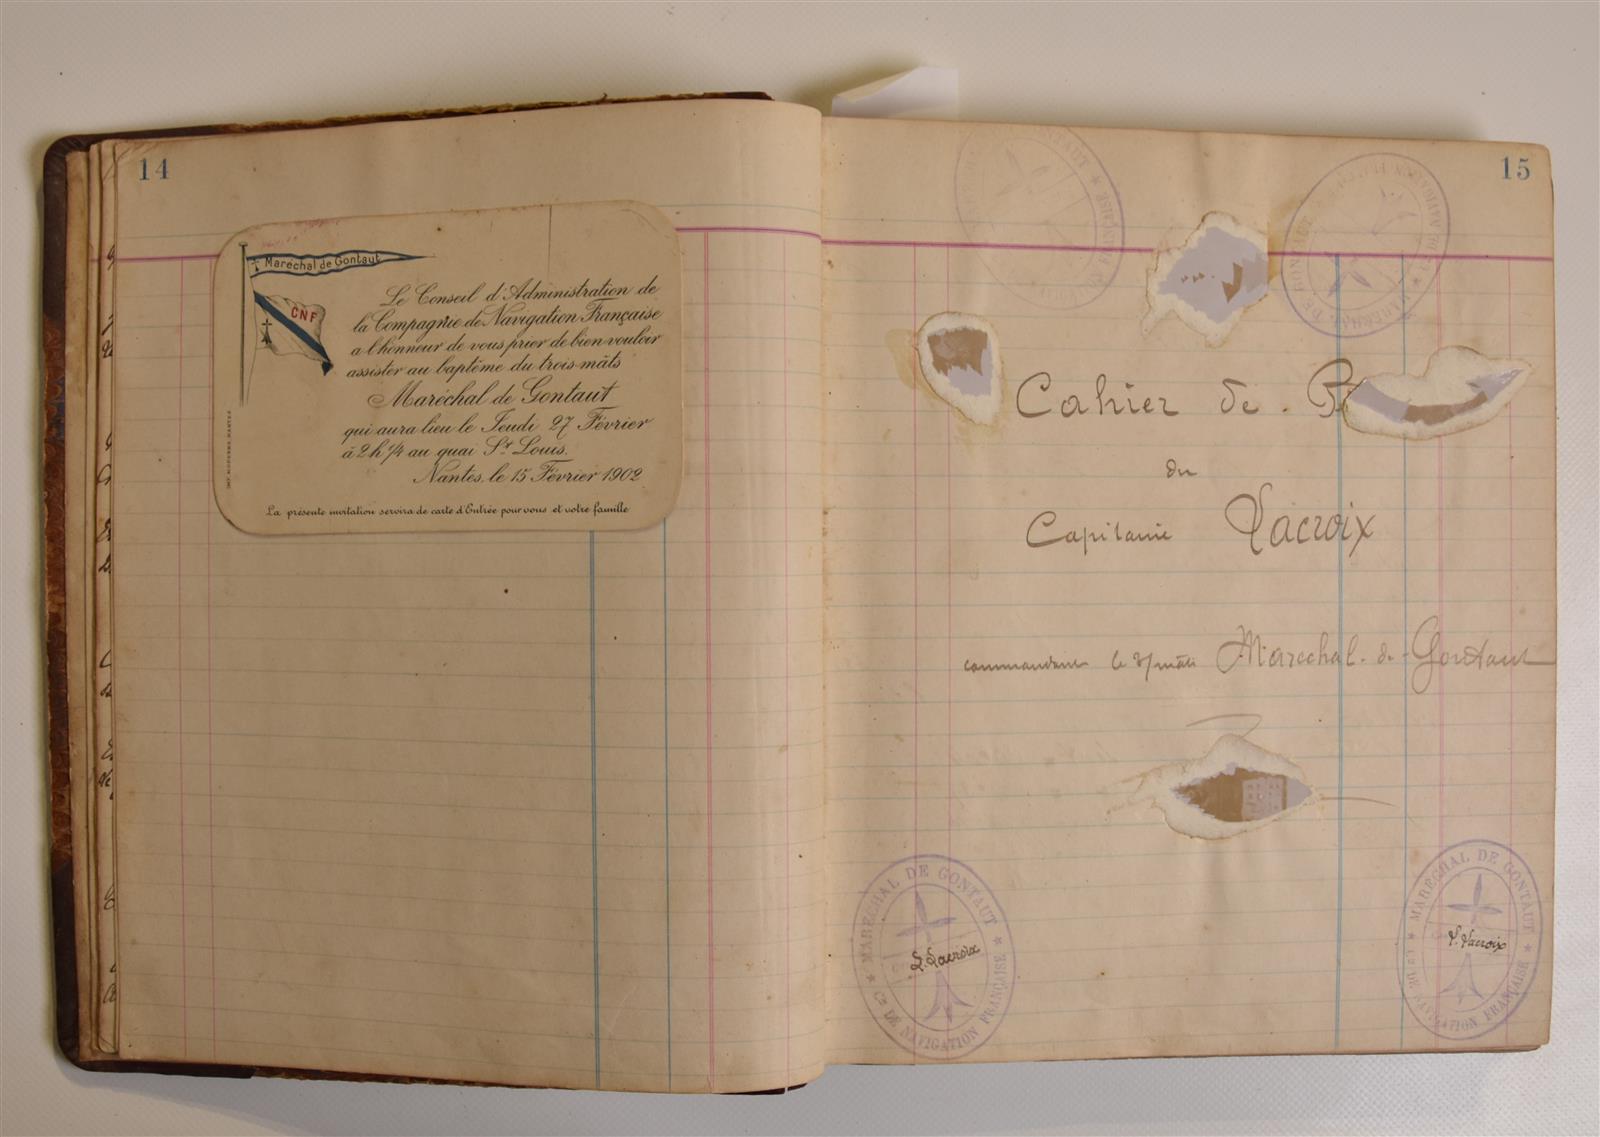 14
Maréchal de Gontaut
CNF
Le Conseil d'Administration de
la Compagnie de Navigation Française
a l'honneur de vous prier de bien vouloir
assister au baptême du trois-mâts
Maréchal de Gontaut
qui aura lieu le Jeudi 27 Février
à 2h 1/4 au quai St Louis.
Nantes, le 15 Février 1902
La présente invitation servira de carte d'Entrée pour vous et votre famille
15
Cahier de B
du
Capitaine Lacroix
commandant le 3/mâts Maréchal de Gontaut
MARÉCHAL DE GONTAUT
L. Lacroix
★ Cie DE NAVIGATION FRANÇAISE ★
MARÉCHAL DE GONTAUT
L. Lacroix
★ Cie DE NAVIGATION FRANÇAISE ★